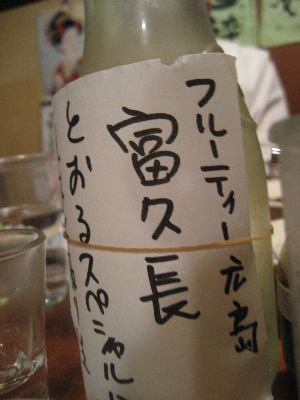 フルーティー广島
富久長
とおるスペシャルに